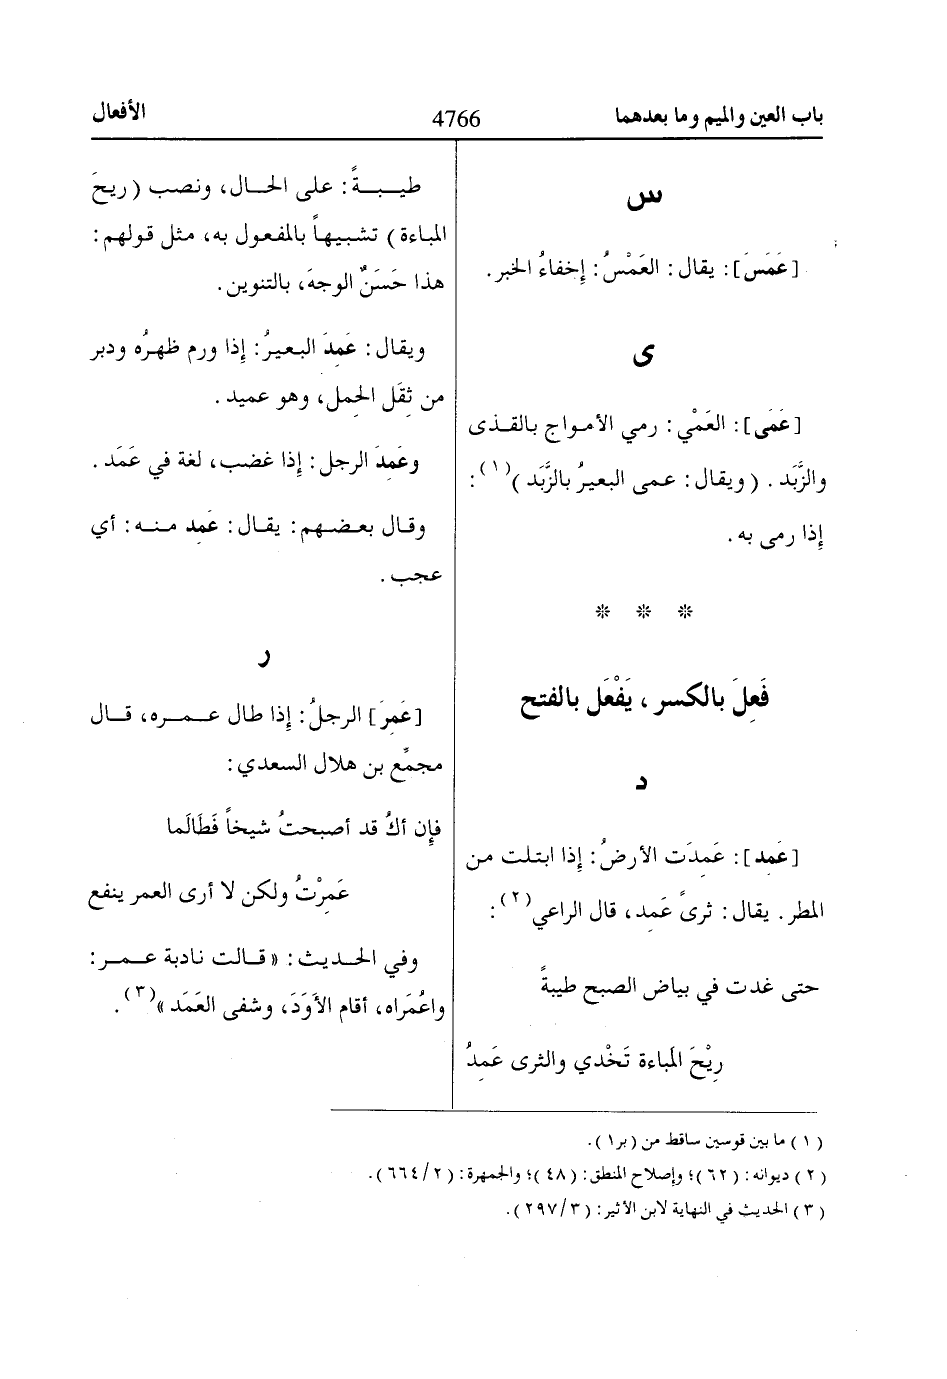 باب العين والميم وما بعدهما
4766
الأفعال
س
[عَمَسَ]: يقال: العَمْسُ: إخفاءُ الخبر.
ى
[عَمَى]: العَمْي: رمي الأمواج بالقذى
والزَّبَد. (ويقال: عمى البعيرُ بالزَّبَد)(١):
إذا رمى به.
* * *
فَعِلَ بالكسر، يَفْعَل بالفتح
د
[عَمِد]: عَمِدَت الأرضُ: إذا ابتلت من
المطر. يقال: ثرىً عَمِد، قال الراعي(٢):
حتى غدت في بياض الصبح طيبةً
رِيْحَ المَباءة تَخْدي والثرى عَمِدُ
طيبةً: على الحال، ونصب (ريحَ
المباءة) تشبيهاً بالمفعول به، مثل قولهم:
هذا حَسَنٌ الوجهَ، بالتنوين.
ويقال: عَمِدَ البعيرُ: إذا ورم ظهرُه ودبر
من ثِقَل الحِمل، وهو عميد.
وعَمِدَ الرجل: إذا غضب، لغة في عَمَد.
وقال بعضهم: يقال: عَمِد منه: أي
عجب.
ر
[عَمِرَ] الرجلُ: إذا طال عمره، قال
مجمِّع بن هلال السعدي:
فإن أكُ قد أصبحتُ شيخاً فَطَالَما
عَمِرْتُ ولكن لا أرى العمر ينفع
وفي الحديث: «قالت نادبة عمر:
واعُمَراه، أقام الأَوَدَ، وشفى العَمَد»(٣).
(١) ما بين قوسين ساقط من (بر١).
(٢) ديوانه: (٦٢)؛ وإصلاح المنطق: (٤٨)؛ والجمهرة: (٢/٦٦٤).
(٣) الحديث في النهاية لابن الأثير: (٣/٢٩٧).